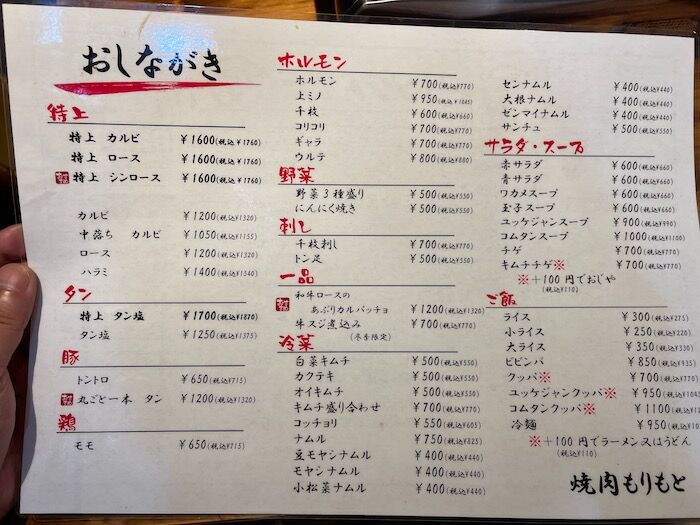 おしながき
特上
特上 カルビ ¥1600(税込¥1760)
特上 ロース ¥1600(税込¥1760)
特上 シンロース ¥1600(税込¥1760)
カルビ ¥1200(税込¥1320)
中落ち カルビ ¥1050(税込¥1155)
ロース ¥1200(税込¥1320)
ハラミ ¥1400(税込¥1540)
タン
特上 タン塩 ¥1700(税込¥1870)
タン塩 ¥1250(税込¥1375)
豚
トントロ ¥650(税込¥715)
丸ごと一本 タン ¥1200(税込¥1320)
鶏
モモ ¥650(税込¥715)
ホルモン
ホルモン ¥700(税込¥770)
上ミノ ¥950(税込¥1045)
千枚 ¥600(税込¥660)
コリコリ ¥700(税込¥770)
ギャラ ¥700(税込¥770)
ウルテ ¥800(税込¥880)
野菜
野菜3種盛り ¥500(税込¥550)
にんにく焼き ¥500(税込¥550)
刺し
千枚刺し ¥700(税込¥770)
トン足 ¥500(税込¥550)
一品
和牛ロースの
あぶりカルパッチョ ¥1200(税込¥1320)
牛スジ煮込み ¥700(税込¥770)
(冬季限定)
冷菜
白菜キムチ ¥500(税込¥550)
カクテキ ¥500(税込¥550)
オイキムチ ¥500(税込¥550)
キムチ盛り合わせ ¥700(税込¥770)
コッチョリ ¥550(税込¥605)
ナムル ¥750(税込¥825)
豆モヤシナムル ¥400(税込¥440)
モヤシナムル ¥400(税込¥440)
小松菜ナムル ¥400(税込¥440)
センナムル ¥400(税込¥440)
大根ナムル ¥400(税込¥440)
ゼンマイナムル ¥400(税込¥440)
サンチュ ¥500(税込¥550)
サラダ・スープ
赤サラダ ¥600(税込¥660)
青サラダ ¥600(税込¥660)
ワカメスープ ¥600(税込¥660)
玉子スープ ¥600(税込¥660)
ユッケジャンスープ ¥900(税込¥990)
コムタンスープ ¥1000(税込¥1100)
チゲ ¥700(税込¥770)
キムチチゲ※ ¥700(税込¥770)
※+100円でおじや
(税込¥110)
ご飯
ライス ¥300(税込¥275)
小ライス ¥250(税込¥220)
大ライス ¥350(税込¥330)
ビビンバ ¥850(税込¥935)
クッパ※ ¥700(税込¥770)
ユッケジャンクッパ※ ¥950(税込¥1045)
コムタンクッパ※ ¥1100(税込
冷麺 ¥950(税込¥
※+100円でラーメン又はうどん
(税込¥110)
焼肉もりもと